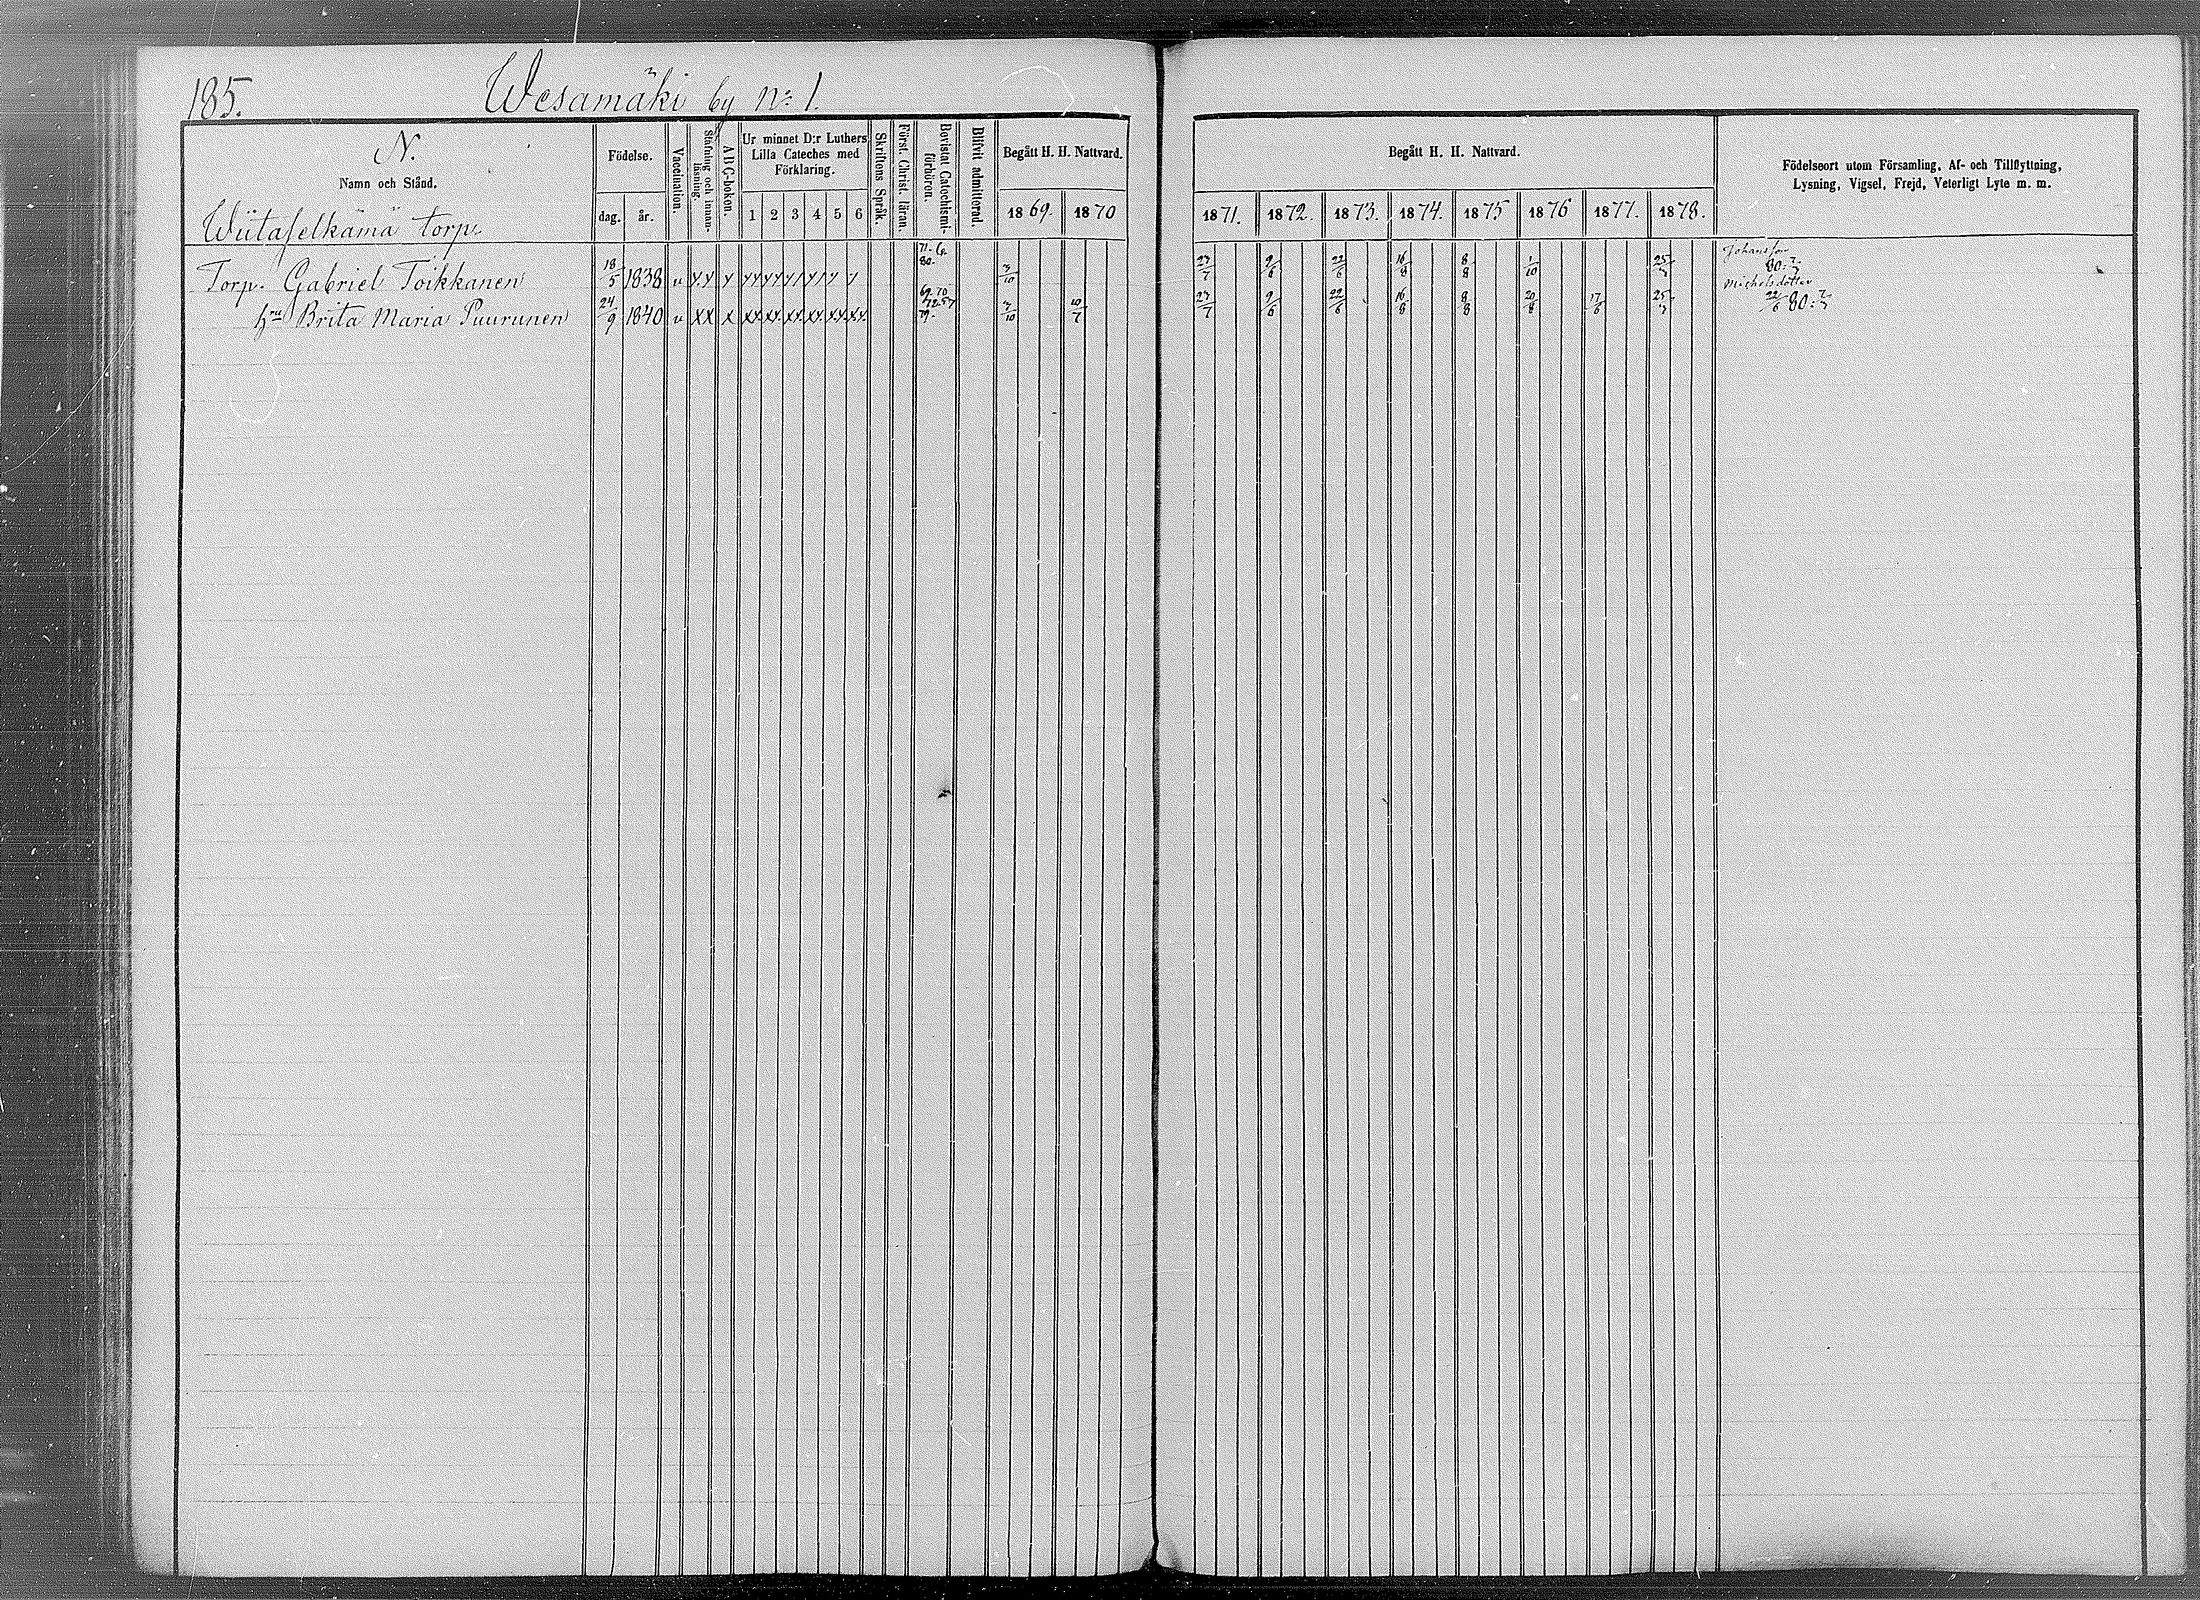 185.
Wesamäki by No 1.
N.
Namn och Stånd.
Födelse.
dag. år.
Vaccination.
Stafning och innanläsning.
A B C-boken.
Ur minnet D:r Luthers
Lilla Cateches med
Förklaring.
1 2 3 4 5 6
Skriftens Språk.
Först. Christ. läran.
Bevistat Catechismiförhören.
Blifvit admitterad.
Begått H. H. Nattvard.
1869. 1870
Begått H. H. Nattvard.
1871. 1872. 1873. 1874. 1875 1876 1877. 1878.
Födelseort utom Församling, Af- och Tillflyttning,
Lysning, Vigsel, Frejd, Veterligt Lyte m. m.
torp.
Torp. Gabriel Toikkanen 18/5 1838 v 3/10 23/7 9/6 22/6 16/8 8/8 1/10 Johansson
hru Brita Maria Puurunen 24/9 1840 v XX X 3/10 10/7 23/7 9/6 22/6 16/8 8/8 20/8 17/6 Michelsdotter 22/6 80